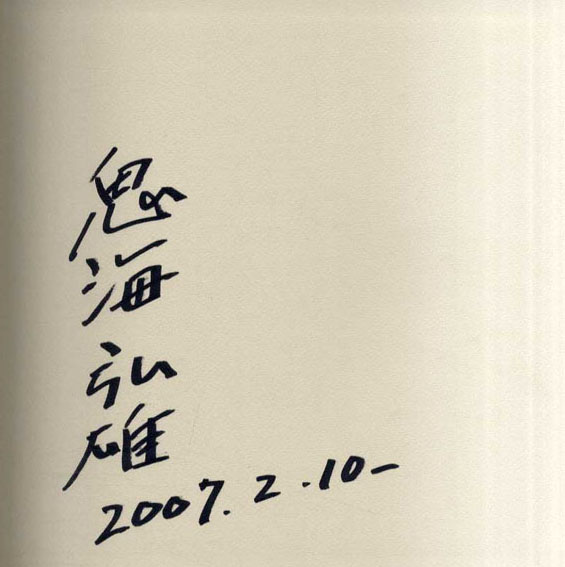 鬼海弘雄
2007.2.10-